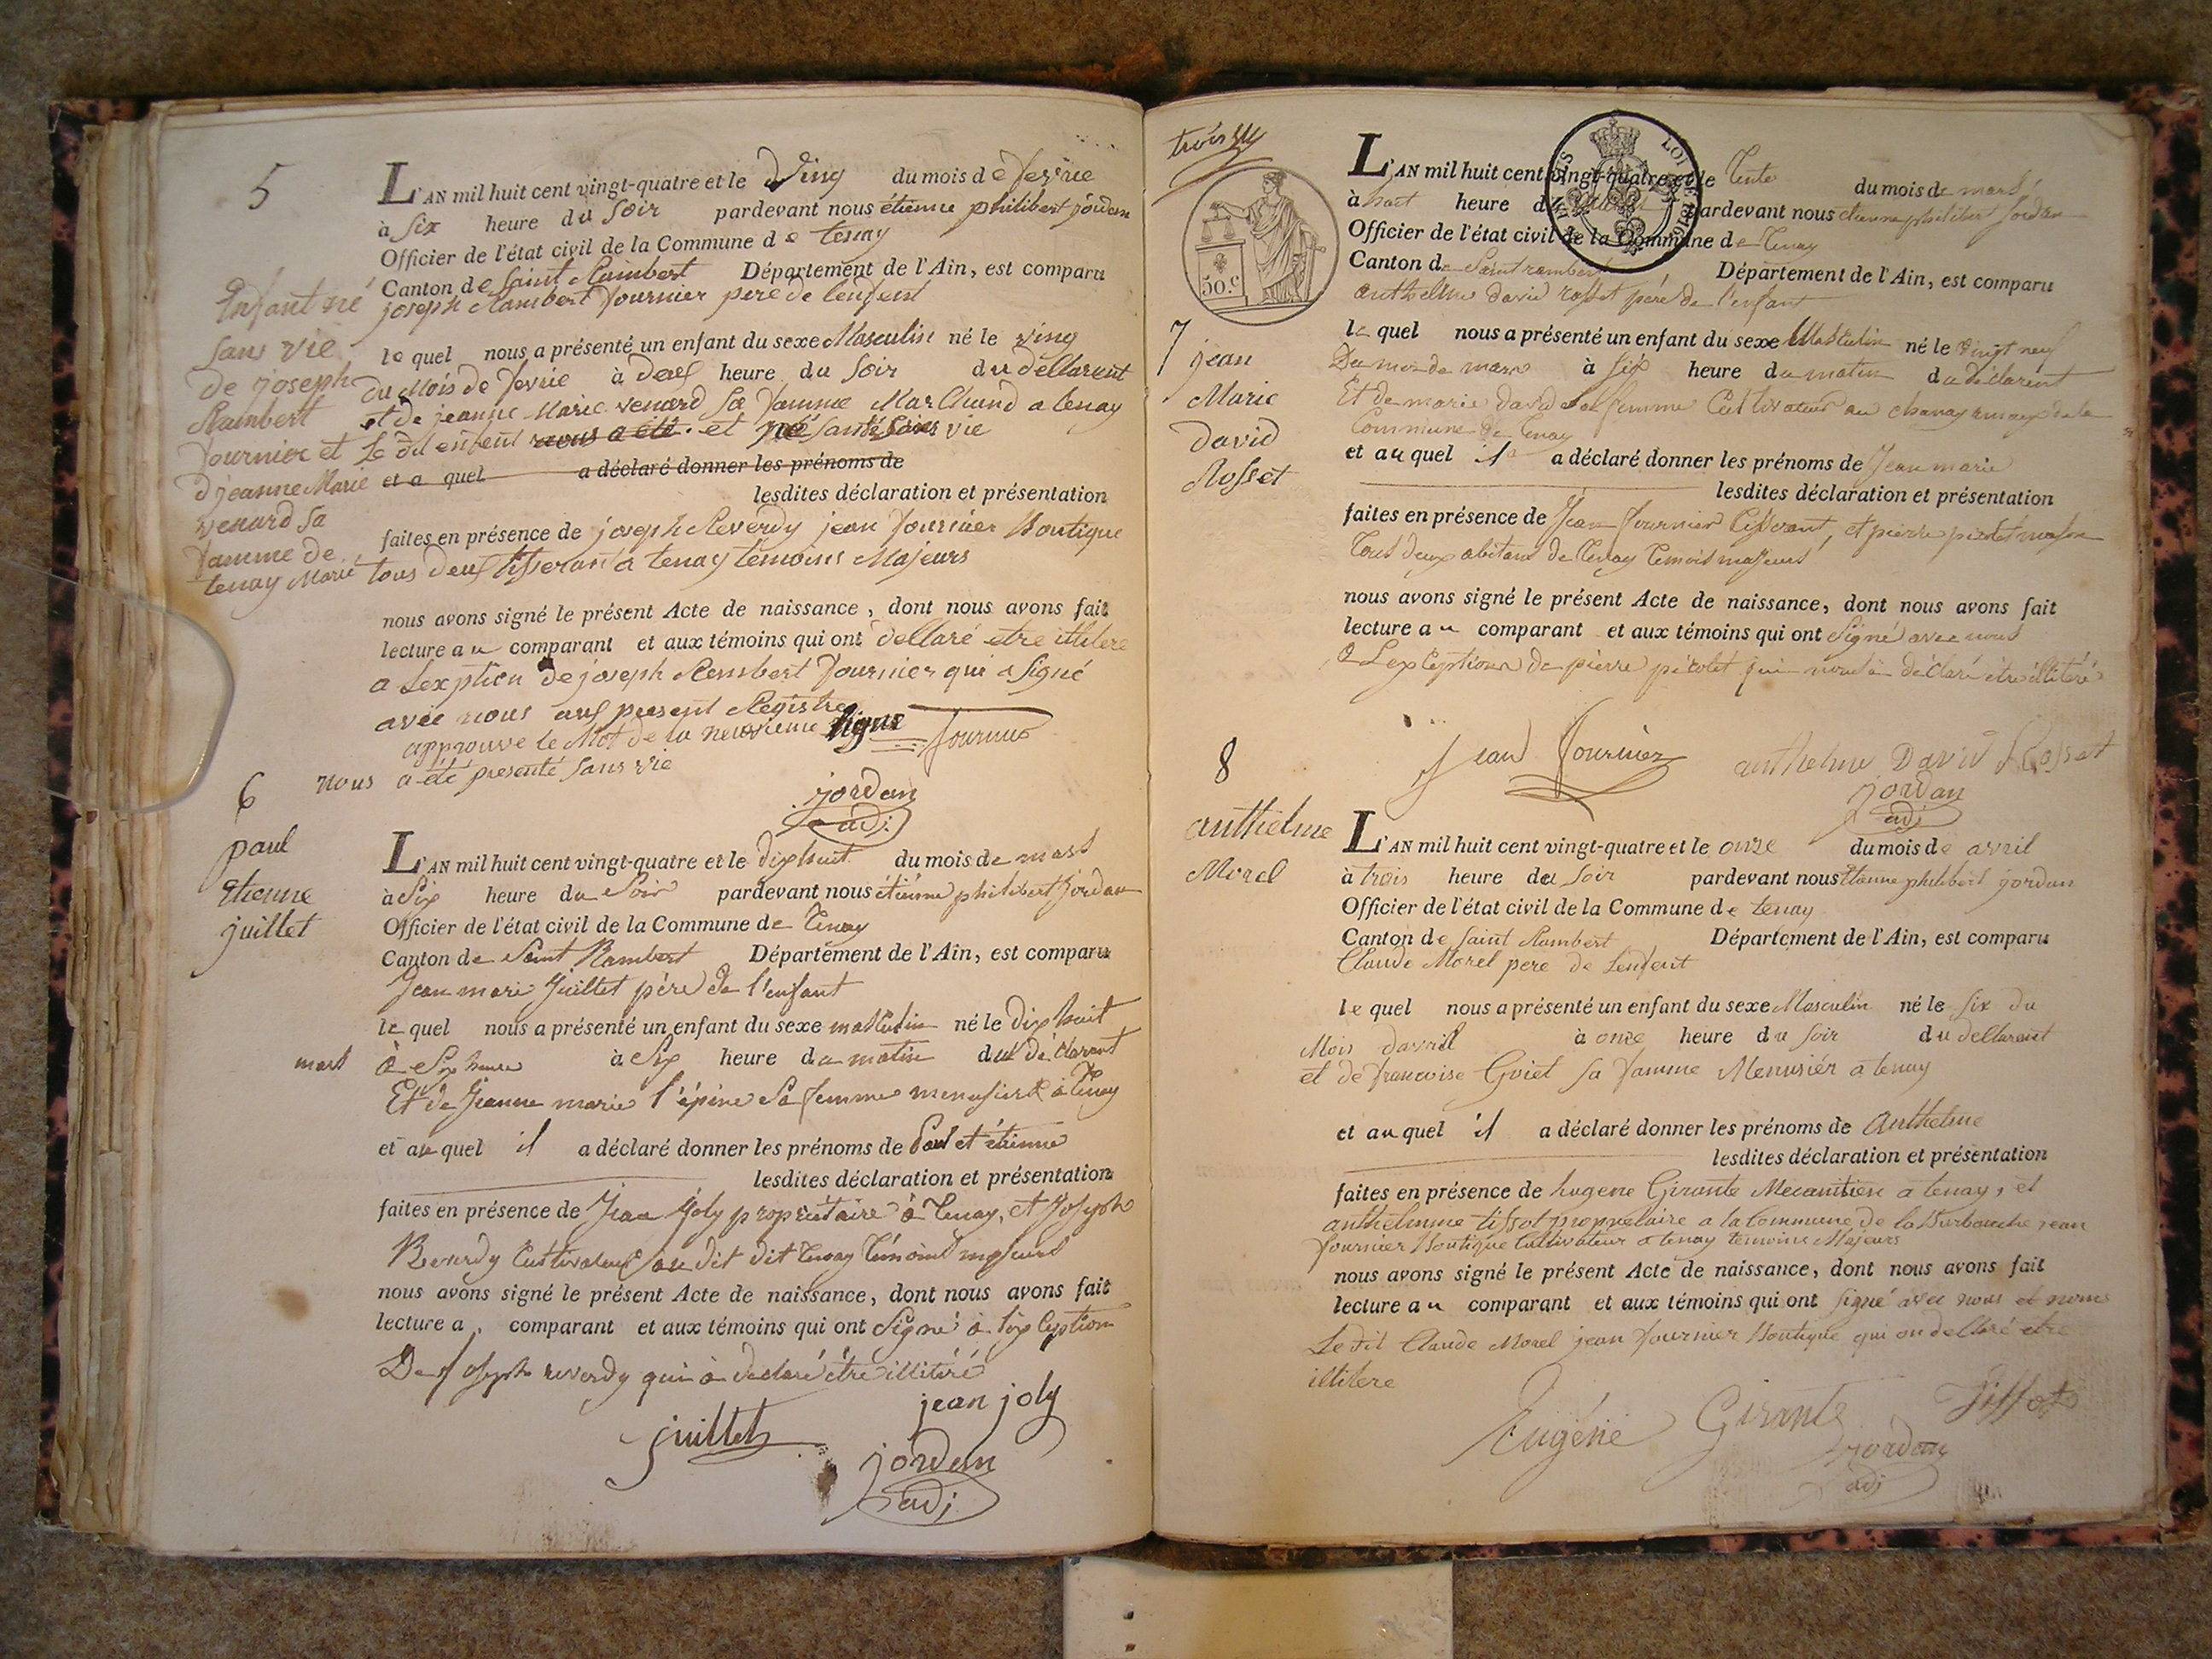 5
L'AN mil huit cent vingt-quatre et le ving du mois de fevrie
à six heure du soir pardevant nous étienne philibert jordan
Officier de l'état civil de la Commune de tenay
Canton de Saint Rambert Département de l'Ain, est comparu
joseph Rambert fournier pere de lenfent
le quel nous a présenté un enfant du sexe Masculin né le ving
du Mois de fevrie à deux heure du soir du dellarent
et de jeanne Marie venard sa famme Marchand a tenay
Le dit enfent nous a été et sans vie
et a quel a déclaré donner les prénoms de
lesdites déclaration et présentation
faites en présence de joseph Reverdy jean fournier Boutique
tous deux tisseran a tenay temoins Majeurs
nous avons signé le présent Acte de naissance, dont nous avons fait
lecture au comparant et aux témoins qui ont dellaré etre illitere
a Lexption de joseph Rembert fournier qui a signé
avec nous aux present Registre
approuve le Mot de la neuvieme ligne
nous a été presenté sans vie
fournier
jordan
adj.
Enfant né
sans vie
de joseph
Rambert
fournier et
d jeanne Marie
venard sa
famme de
tenay Marié
6
paul
Etienne
juillet
L'AN mil huit cent vingt-quatre et le dixhuit du mois de mars
à six heure du Soir pardevant nous étiénne philibert jordan
Officier de l'état civil de la Commune de Tenay
Canton de Saint Rambert Département de l'Ain, est comparu
Jean marie Juillet père de l'enfant
le quel nous a présenté un enfant du sexe masculin né le dixhuit
mars à Six heure à Six heure du matin du déclarant
Et de Jeanne marie l'épine Sa femme menusier à Tenay
et au quel il a déclaré donner les prénoms de Paul et étienne
lesdites déclaration et présentation
faites en présence de Jean Joly propriétaire à Tenay, et Joseph
Reverdy Cultivateur au dit dit Tenay témoins majeurs
nous avons signé le présent Acte de naissance, dont nous avons fait
lecture a comparant et aux témoins qui ont Signé à l'exception
De Joseph reverdy qui à declaré être illitéré
juillet
jean joly
jordan
adj.
trois
50.c
LOI DE 1816
L'AN mil huit cent vingt-quatre et le Tente du mois de mars
à huit heure du pardevant nous étienne philibert Jordan
Officier de l'état civil de la Commune de Tenay
Canton de Saint rambert Département de l'Ain, est comparu
anthelme david rosset père de l'enfant
7
jean
Marie
david
Rosset
le quel nous a présenté un enfant du sexe Masculin né le vingt neuf
Du mois de mars à six heure du matin du déclarent
Et de marie david sa femme Cultivateur au de la
Commune de Tenay
et au quel il a déclaré donner les prénoms de Jean marie
lesdites déclaration et présentation
faites en présence de Jean fournier tisserant, et pierre
Tous deux abitans de Tenay temoins majeurs
nous avons signé le présent Acte de naissance, dont nous avons fait
lecture au comparant et aux témoins qui ont Signé avec nous
à L'exception de pierre picolet qui nous à déclaré être illitéré
Jean fournier
anthelme David Rosset
jordan
adj
8
anthelme
Morel
L'AN mil huit cent vingt-quatre et le onze du mois de avril
à trois heure du soir pardevant nous Etienne philibert jordan
Officier de l'état civil de la Commune de tenay
Canton de saint Rambert Département de l'Ain, est comparu
Claude Morel pere de Lenfent
le quel nous a présenté un enfant du sexe Masculin né le six du
Mois davril à onze heure du soir du dellarent
et de francoise Goiet sa famme Menusiér a tenay
et au quel il a déclaré donner les prénoms de Anthelme
lesdites déclaration et présentation
faites en présence de hugene Girante Mecanitien a tenay, et
anthelmme tissot propretaire a la Commune de la Burbanche jean
fournier Boutique Cultivateur a tenay temoins Majeurs
nous avons signé le présent Acte de naissance, dont nous avons fait
lecture au comparant et aux témoins qui ont signé avec nous et nome
Le dit Claude Morel jean fournier Boutique qui on dellaré etre
illitere
Eugéne Girante
Tissot
jordan
adj